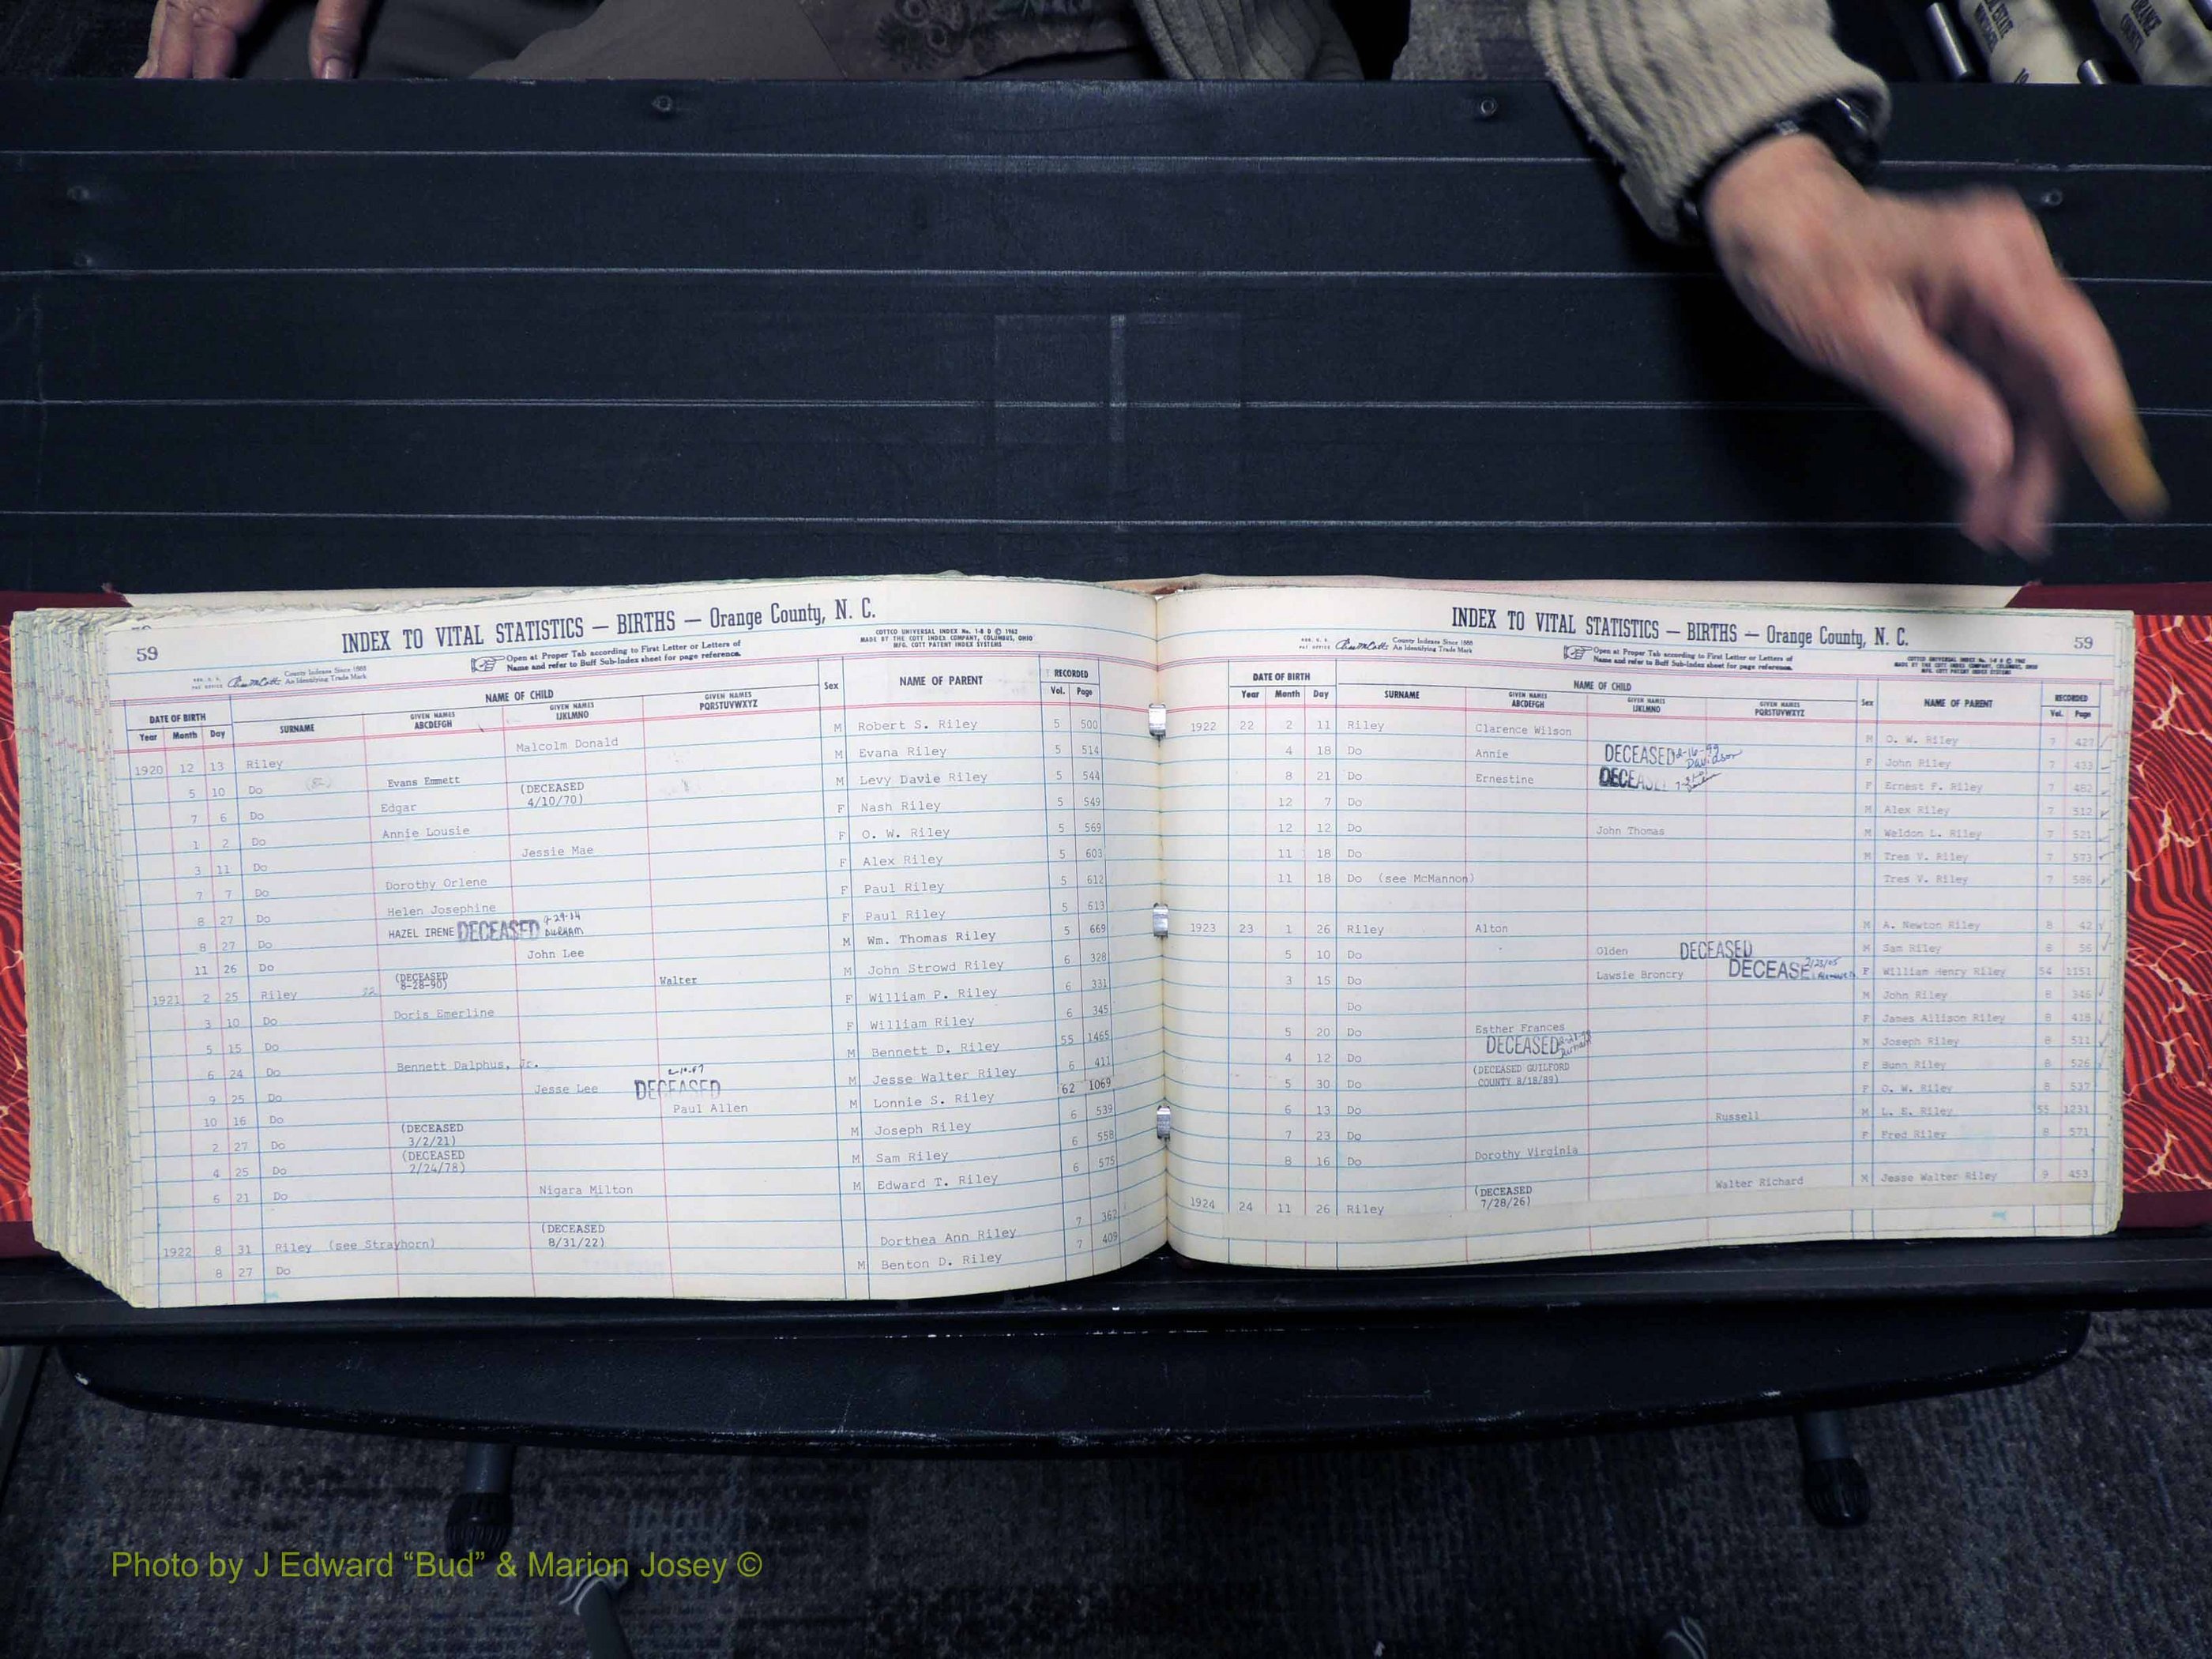 59
INDEX TO VITAL STATISTICS — BIRTHS — Orange County, N. C.
County Indexes Since 1888
An Identifying Trade Mark
Open at Proper Tab according to First Letter or Letters of
Name and refer to Buff Sub-Index sheet for page reference.
COTTCO UNIVERSAL INDEX No. 1-8 D © 1962
MADE BY THE COTT INDEX COMPANY, COLUMBUS, OHIO
MFG. COTT PATENT INDEX SYSTEMS
DATE OF BIRTH NAME OF CHILD Sex NAME OF PARENT RECORDED
Year Month Day SURNAME GIVEN NAMES ABCDEFGH GIVEN NAMES IJKLMNO GIVEN NAMES PQRSTUVWXYZ Vol. Page
1920 12 13 Riley Malcolm Donald M Robert S. Riley 5 500
5 10 Do Evans Emmett M Evana Riley 5 514
7 6 Do Edgar (DECEASED 4/10/70) M Levy Davie Riley 5 544
1 2 Do Annie Lousie F Nash Riley 5 549
3 11 Do Jessie Mae F O. W. Riley 5 569
7 7 Do Dorothy Orlene F Alex Riley 5 603
8 27 Do Helen Josephine F Paul Riley 5 612
8 27 Do HAZEL IRENE DECEASED DURHAM F Paul Riley 5 613
11 26 Do John Lee M Wm. Thomas Riley 5 669
1921 2 25 Riley (DECEASED 8-28-90) Walter M John Strowd Riley 6 328
3 10 Do Doris Emerline F William P. Riley 6 331
5 15 Do F William Riley 6 345
6 24 Do Bennett Dalphus, Jr. M Bennett D. Riley 55 1465
9 25 Do Jesse Lee DECEASED M Jesse Walter Riley 6 411
10 16 Do Paul Allen M Lonnie S. Riley 62 1069
2 27 Do (DECEASED 3/2/21) M Joseph Riley 6 539
4 25 Do (DECEASED 2/24/78) M Sam Riley 6 558
6 21 Do Nigara Milton M Edward T. Riley 6 575
1922 8 31 Riley (see Strayhorn) (DECEASED 8/31/22) Dorthea Ann Riley 7 362
8 27 Do M Benton D. Riley 7 409
INDEX TO VITAL STATISTICS — BIRTHS — Orange County, N. C.
59
County Indexes Since 1888
An Identifying Trade Mark
Open at Proper Tab according to First Letter or Letters of
Name and refer to Buff Sub-Index sheet for page reference.
COTTCO UNIVERSAL INDEX No. 1-8 D © 1962
MADE BY THE COTT INDEX COMPANY, COLUMBUS, OHIO
MFG. COTT PATENT INDEX SYSTEMS
DATE OF BIRTH NAME OF CHILD Sex NAME OF PARENT RECORDED
Year Month Day SURNAME GIVEN NAMES ABCDEFGH GIVEN NAMES IJKLMNO GIVEN NAMES PQRSTUVWXYZ Vol. Page
1922 22 2 11 Riley Clarence Wilson M O. W. Riley 7 427
4 18 Do Annie DECEASED Davidson F John Riley 7 433
8 21 Do Ernestine DECEASED F Ernest F. Riley 7 482
12 7 Do M Alex Riley 7 512
12 12 Do John Thomas M Weldon L. Riley 7 521
11 18 Do M Tres V. Riley 7 573
11 18 Do (see McMannon) Tres V. Riley 7 586
1923 23 1 26 Riley Alton M A. Newton Riley 8 42
5 10 Do Olden DECEASED M Sam Riley 8 56
3 15 Do Lawsie Broncry DECEASED F William Henry Riley 54 1151
Do M John Riley 8 346
5 20 Do Esther Frances DECEASED F James Allison Riley 8 418
4 12 Do M Joseph Riley 8 511
5 30 Do (DECEASED GUILFORD COUNTY 8/18/89) F Bunn Riley 8 526
6 13 Do F O. W. Riley 8 537
7 23 Do Russell M L. E. Riley 55 1231
8 16 Do Dorothy Virginia F Fred Riley 8 571
1924 24 11 26 Riley (DECEASED 7/28/26) Walter Richard M Jesse Walter Riley 9 453
Photo by J Edward “Bud” & Marion Josey ©